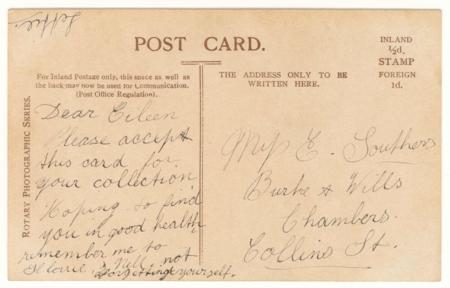 Jeffie.
POST CARD.
INLAND
½d.
STAMP
FOREIGN
1d.
For Inland Postage only, this space as well as
the back may now be used for Communication.
(Post Office Regulation).
THE ADDRESS ONLY TO BE
WRITTEN HERE.
ROTARY PHOTOGRAPHIC SERIES.
Dear Eileen
Please accept
this card for
your collection
Hoping to find
you in good health
remember me to
Florrie, & Nell. not
forgetting yourself.
Miss E. Southers
Burke & Wills
Chambers.
Collins St.